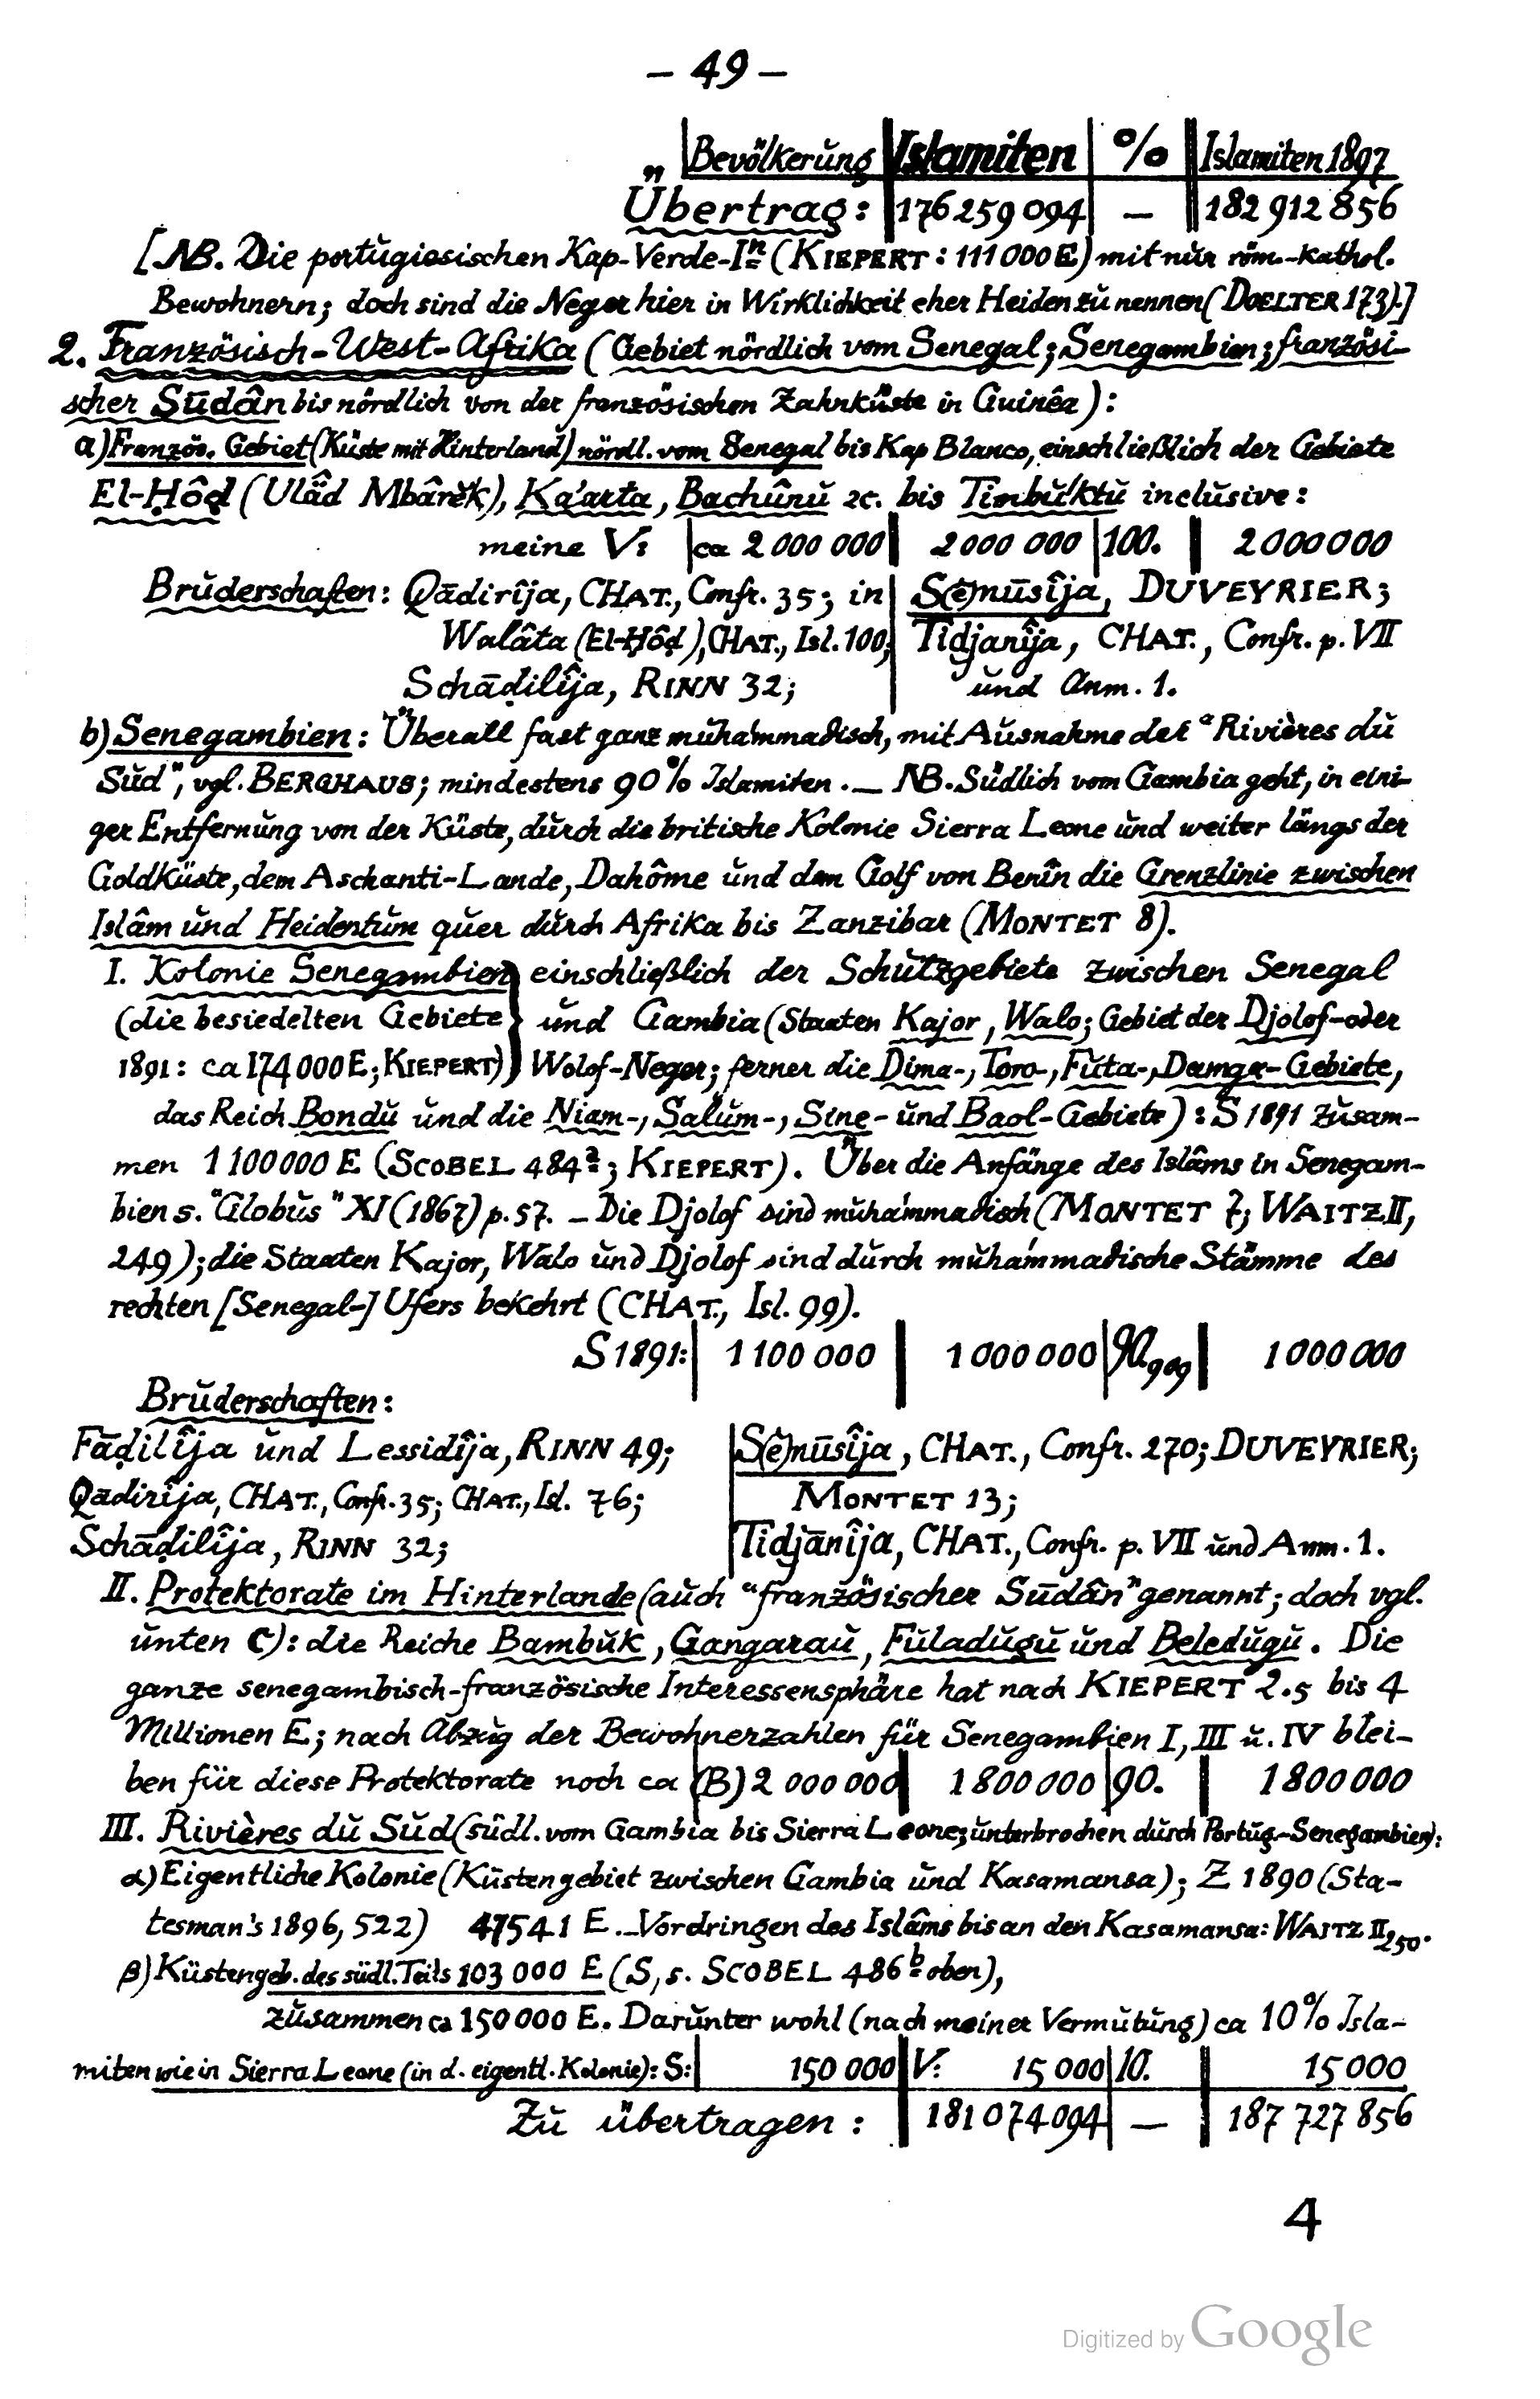 – 49 –
Bevölkerung | Islamiten | % | Islamiten 1897
Übertrag: | 176 259 094 | — | 182 912 856
[NB. Die portugiesischen Kap-Verde-In (KIEPERT: 111 000 E) mit nur röm.-kathol.
Bewohnern; doch sind die Neger hier in Wirklichkeit eher Heiden zu nennen (DOELTER 173).]
2. Französisch-West-Afrika (Gebiet nördlich vom Senegal; Senegambien; französi-
scher Sūdân bis nördlich von der französischen Zahnküste in Guinêa):
a) Französ. Gebiet (Küste mit Hinterland) nördl. vom Senegal bis Kap Blanco, einschließlich der Gebiete
El-Ḥôḍ (Ulâd Mbârĕk), Ka'arta, Bachûnu ꝛc. bis Timbuktu inclusive:
meine V: | ca 2 000 000 | 2 000 000 | 100. | 2 000 000
Bruderschaften: Qādirîja, CHAT., Confr. 35; in | S(e)nūsîja, DUVEYRIER;
Walâta (El-Ḥôḍ), CHAT., Isl. 100; | Tidjanîja, CHAT., Confr. p. VII
Schāḍilîja, RINN 32; | und Anm. 1.
b) Senegambien: Überall fast ganz muhammadisch, mit Ausnahme der "Rivières du
Sud", vgl. BERGHAUS; mindestens 90 % Islamiten. — NB. Südlich vom Gambia geht, in eini-
ger Entfernung von der Küste, durch die britische Kolonie Sierra Leone und weiter längs der
Goldküste, dem Aschanti-Lande, Dahôme und dem Golf von Benîn die Grenzlinie zwischen
Islâm und Heidentum quer durch Afrika bis Zanzibar (MONTET 8).
I. Kolonie Senegambien } einschließlich der Schutzgebiete zwischen Senegal
(die besiedelten Gebiete } und Gambia (Staaten Kajor, Walo; Gebiet der Djolof- oder
1891: ca 174 000 E; KIEPERT) } Wolof-Neger; ferner die Dima-, Toro-, Futa-, Damga-Gebiete,
das Reich Bondu und die Niam-, Salum-, Sine- und Baol-Gebiete): S 1891 zusam-
men 1 100 000 E (SCOBEL 484ª; KIEPERT). Über die Anfänge des Islâms in Senegam-
bien s. "Globus" XI (1867) p. 57. – Die Djolof sind muhammadisch (MONTET 7; WAITZ II,
249); die Staaten Kajor, Walo und Djolof sind durch muhammadische Stämme des
rechten [Senegal-] Ufers bekehrt (CHAT., Isl. 99).
S 1891: | 1 100 000 | 1 000 000 | 90,909 | 1 000 000
Bruderschaften:
Fāḍilîja und Lessidîja, RINN 49; | S(e)nūsîja, CHAT., Confr. 270; DUVEYRIER;
Qādirîja, CHAT., Confr. 35; CHAT., Isl. 76; | MONTET 13;
Schāḍilîja, RINN 32; | Tidjānîja, CHAT., Confr. p. VII und Anm. 1.
II. Protektorate im Hinterlande (auch "französischer Sūdân" genannt; doch vgl.
unten C): die Reiche Bambuk, Gangarau, Fuladugu und Beledugu. Die
ganze senegambisch-französische Interessensphäre hat nach KIEPERT 2.5 bis 4
Millionen E; nach Abzug der Bewohnerzahlen für Senegambien I, III u. IV blei-
ben für diese Protektorate noch ca | (B) 2 000 000 | 1 800 000 | 90. | 1 800 000
III. Rivières du Sud (südl. vom Gambia bis Sierra Leone; unterbrochen durch Portug.-Senegambien):
α) Eigentliche Kolonie (Küstengebiet zwischen Gambia und Kasamansa); Z 1890 (Sta-
tesman's 1896, 522) 47541 E. – Vordringen des Islâms bis an den Kasamansa: WAITZ II, 250.
β) Küstengeb. des südl. Teils 103 000 E (S, s. SCOBEL 486 b oben),
zusammen ca 150 000 E. Darunter wohl (nach meiner Vermutung) ca 10 % Isla-
miten wie in Sierra Leone (in d. eigentl. Kolonie): S: | 150 000 | V: 15 000 | 10. | 15 000
Zu übertragen: | 181 074 094 | — | 187 727 856
4
Digitized by Google